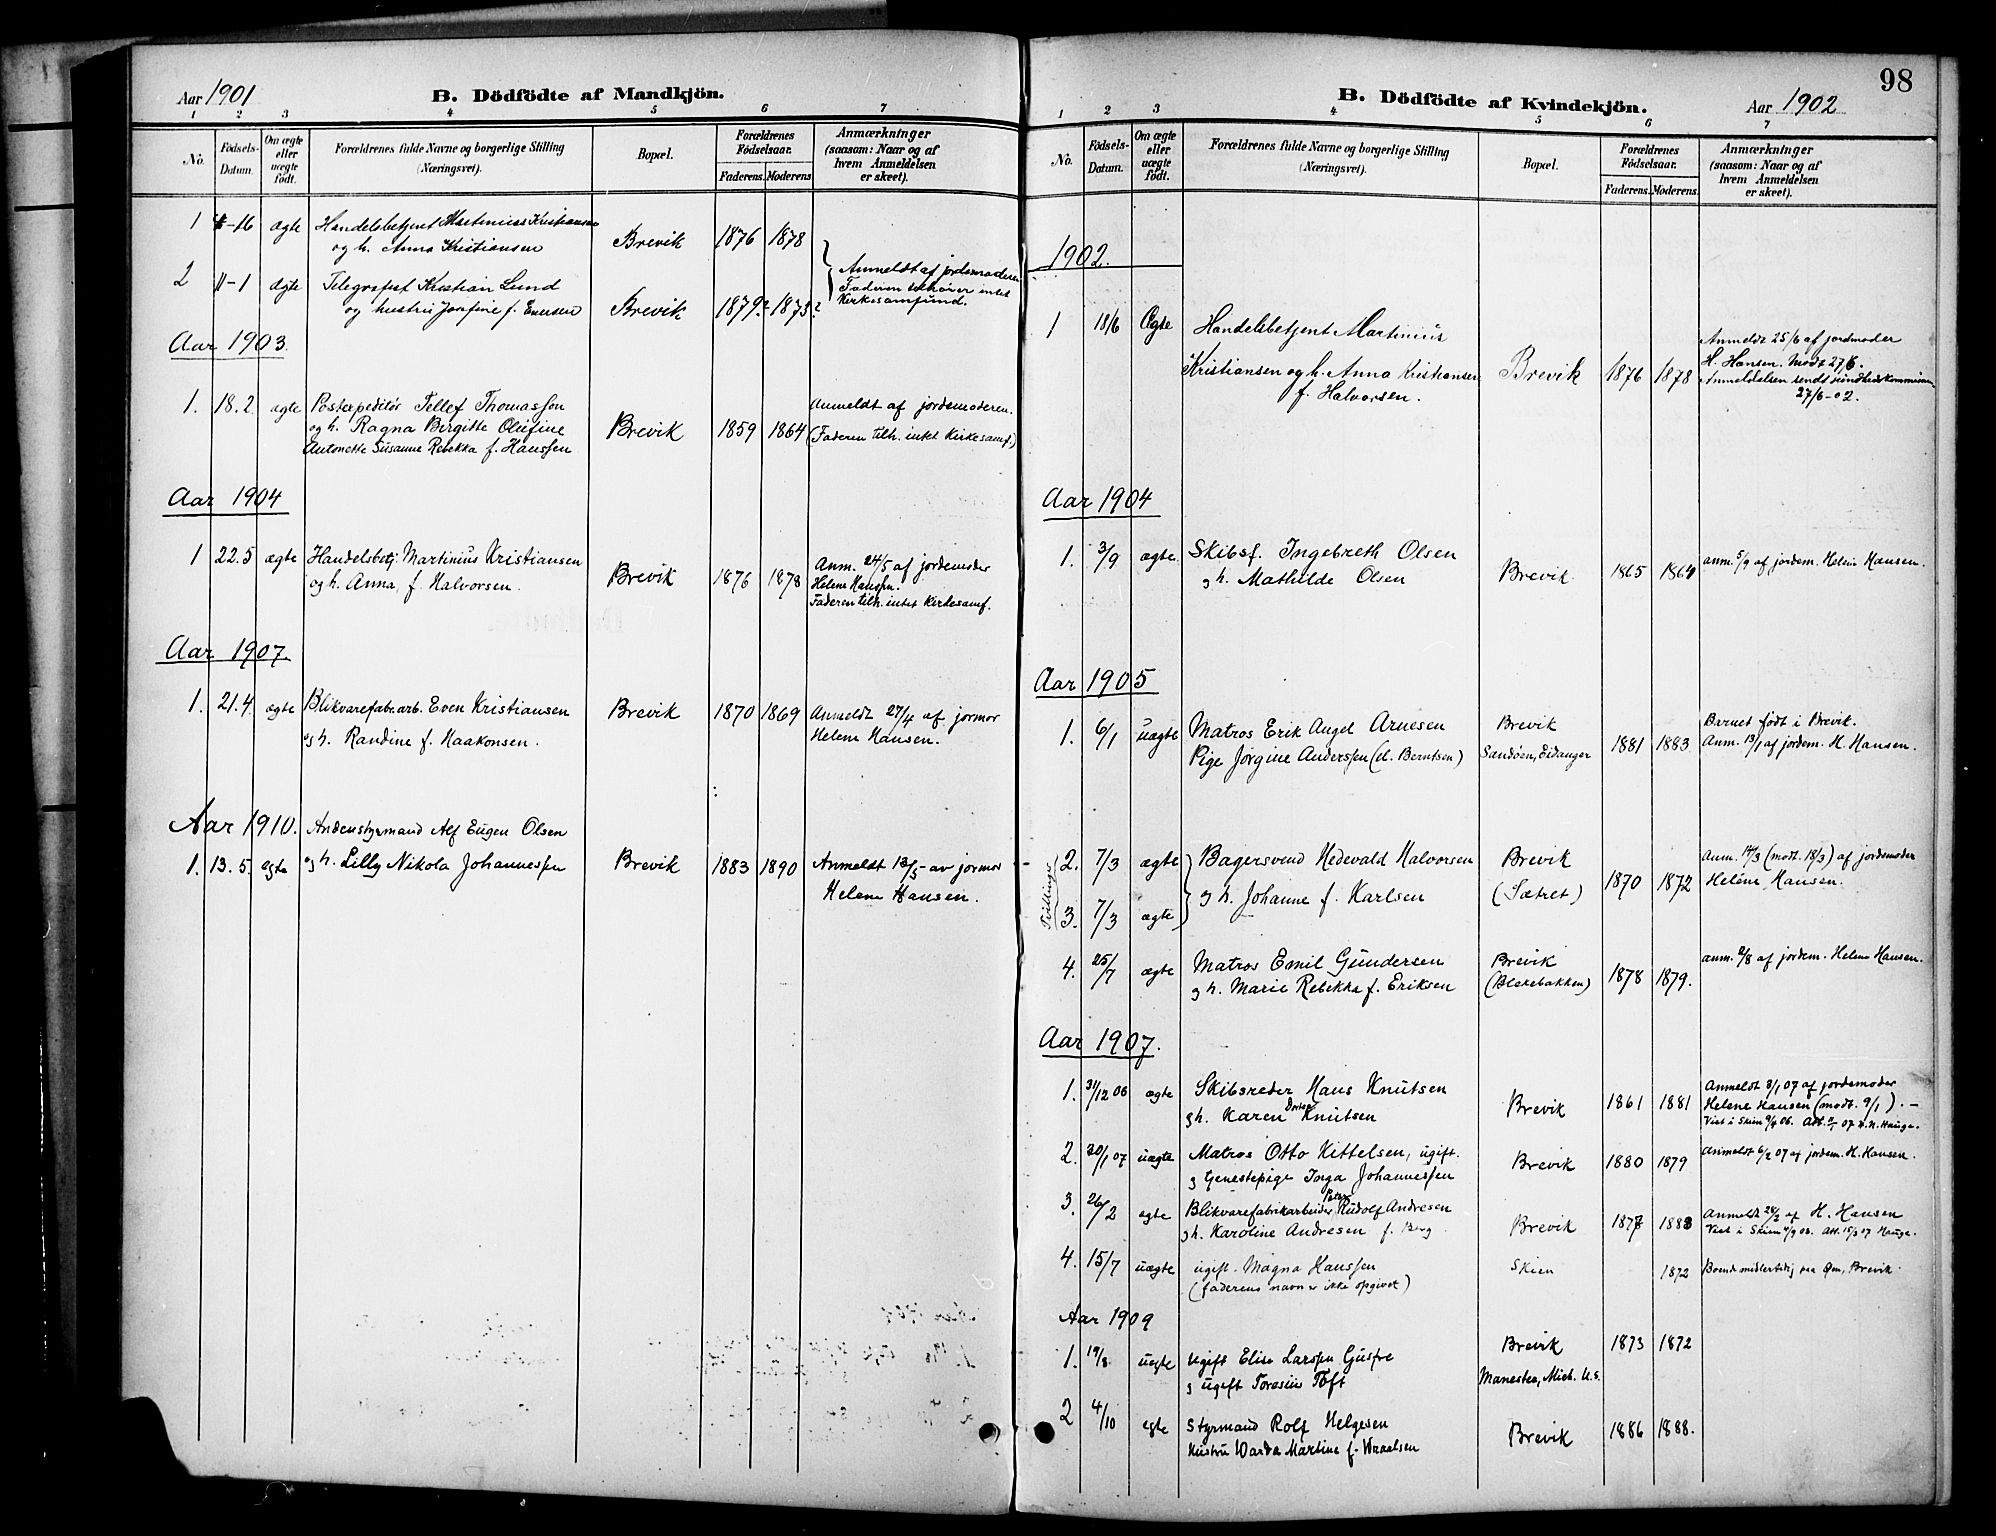 Aar 1901
B. Dödfödte af Mandkjön.
1 2 3 4 5 6 7
No. Födsels-Datum. Om ægte eller uægte födt. Forældrenes fulde Navne og borgerlige Stilling (Næringsvei). Bopæl. Forældrenes Födselsaar. Faderens. Moderens. Anmærkninger (saasom: Naar og af hvem Anmeldelsen er skeet).
1 4-16 ægte Handelsbetjent Martinius Kristiansen
og h. Anna Kristiansen Brevik 1876 1878
2 11-1 ægte Telegrafist Kristian Lund Anmeldt af jordemoderen
og hustru Josefine f. Evensen Brevik 1879?-1873? Faderen tilhører intet
Kirkesamfund.
Aar 1903.
1. 18.2. ægte Postexpeditör Tellef Thomassen Anmeldt af jordemoderen.
og h. Ragna Birgitte Olufine Brevik 1859 1864 (Faderen tilh. intet Kirkesamf.)
Antonette Susanne Rebekka f. Hanssen
Aar 1904
1 22.5 ægte Handelsbetj. Martinius Kristiansen Anm. 24/5 af jordemoder
og h. Anna, f. Halvorsen. Brevik 1876 1878 Helene Hanssen.
Faderen tilh. intet Kirkesamf.
Aar 1907.
1. 21.4. ægte Blikvarefabr.arb. Even Kristiansen Brevik 1870 1869 Anmeldt 27/4 af jormor
og h. Randine f. Haakonsen. Helene Hansen.
Aar 1910. Andenstyrmand Alf Eugen Olsen
1. 13.5. egte og h. Lilly Nikola Johannessen Brevik 1883 1890 Anmeldt 13/5- av jormor
Helene Hansen.
98
B. Dödfödte af Kvindekjön.
Aar 1902
1 2 3 4 5 6 7
No. Födsels-Datum. Om ægte eller uægte födt. Forældrenes fulde Navne og borgerlige Stilling (Næringsvei). Bopæl. Forældrenes Födselsaar. Faderens. Moderens. Anmærkninger (saasom: Naar og af hvem Anmeldelsen er skeet).
1902.
1 18/6 Ægte Handelsbetjent Martinius Anmeldt 25/6 af jordmoder
Kristiansen og h. Anna Kristiansen Brevik 1876 1878 H. Hansen. Modt 27/6.
f. Halvorsen. Anmeldelsen sendt sundhedskommission
27/6-02.
Aar 1904
1. 3/9 ægte. Skibsf. Ingebreth Olsen anm. 5/9 af jordem. Helene Hansen.
og h. Mathilde Olsen Brevik. 1865 1864
Aar 1905
1. 6/1 uægte Matros Erik Angel Arnesen Brevik Barnet født i Brevik.
Pige Jörgine Anderssen (el. Berntsen) Sandöen, Eidanger 1881 1883 Anm. 13/1 af jordem. H. Hansen.
Tvillinger
2. 7/3 ægte Bagersvend Hedevald Halvorsen Brevik Anm. 14/3 (modt. 18/3) af jordemoder
og h. Johanne f. Karlsen (Sætret) 1870 1872 Heléne Hansen.
3. 7/3 ægte
4. 25/7 ægte Matros Emil Gundersen Brevik anm. 2/8 af jordem. Helene Hansen.
og h. Marie Rebekka f. Eriksen (Blekebakken) 1878 1879.
Aar 1907.
1. 31/12 06 ægte Skibsreder Hans Knutsen Anmeldt 8/1 07 af jordemoder
og h. Karen Dortea Knutsen Brevik 1861 1881 Helene Hansen (modt. 9/1). -
2. 30/1 07 uægte Matros Otto Kittelsen, ugift. Anmeldt 6/2 07 af jordem. H. Hansen.
og tjenestepige Inga Johannessen Brevik 1880 1879
3. 26/2 egte Blikvarefabrikarbeider Peter Rudolf Andresen Anmeldt 28/2 af H. Hansen
og h. Karoline Andresen f. Berg Brevik 1877 1883
4. 15/7 uægte ugift. Magna Hanssen Skien 1872 Boende midlertidig paa Øen, Brevik.
(faderens navn er ikke opgivet)
Aar 1909
1. 19/8 uegte ugift Elise Larssen Gusfre Brevik 1873 1872
og ugift Toresius Toft Manestee, Mich. U.S.
2 4/10 egte Styrmand Rolf Helgesen Brevik 1886 1888.
Hustru Varda Martine f. Wraalsen